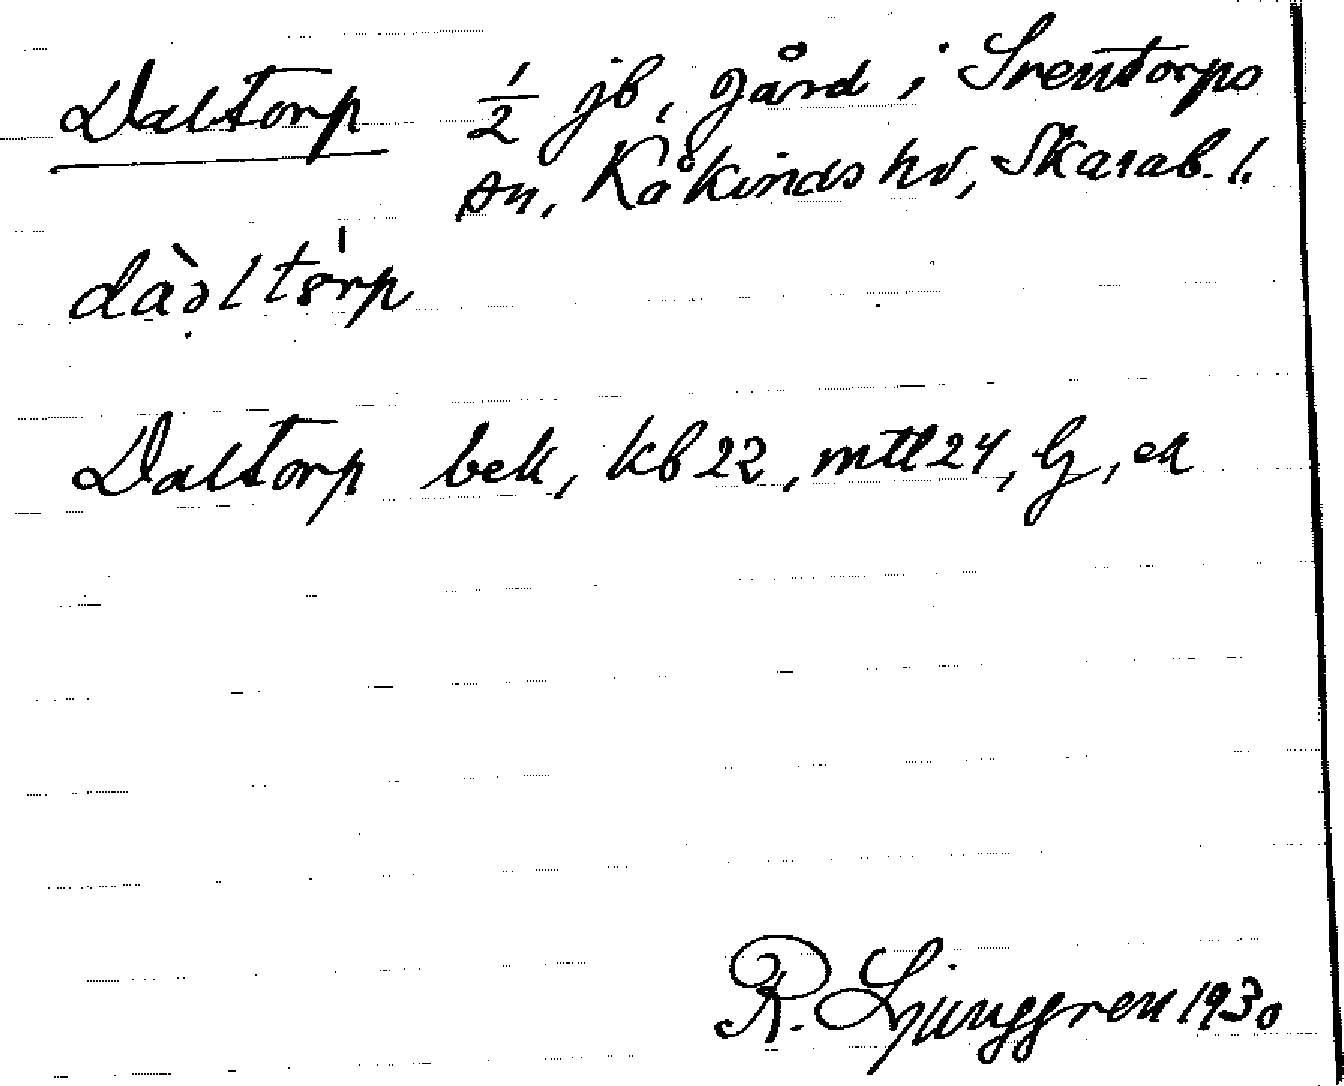 Daltorp ½ jb, gård i Sventorps
sn, Kåkinds hd, Skarab. l.
dàəltȯrp
Daltorp bek, kb 22, mtl 24, G, ek
R. Ljunggren 1930